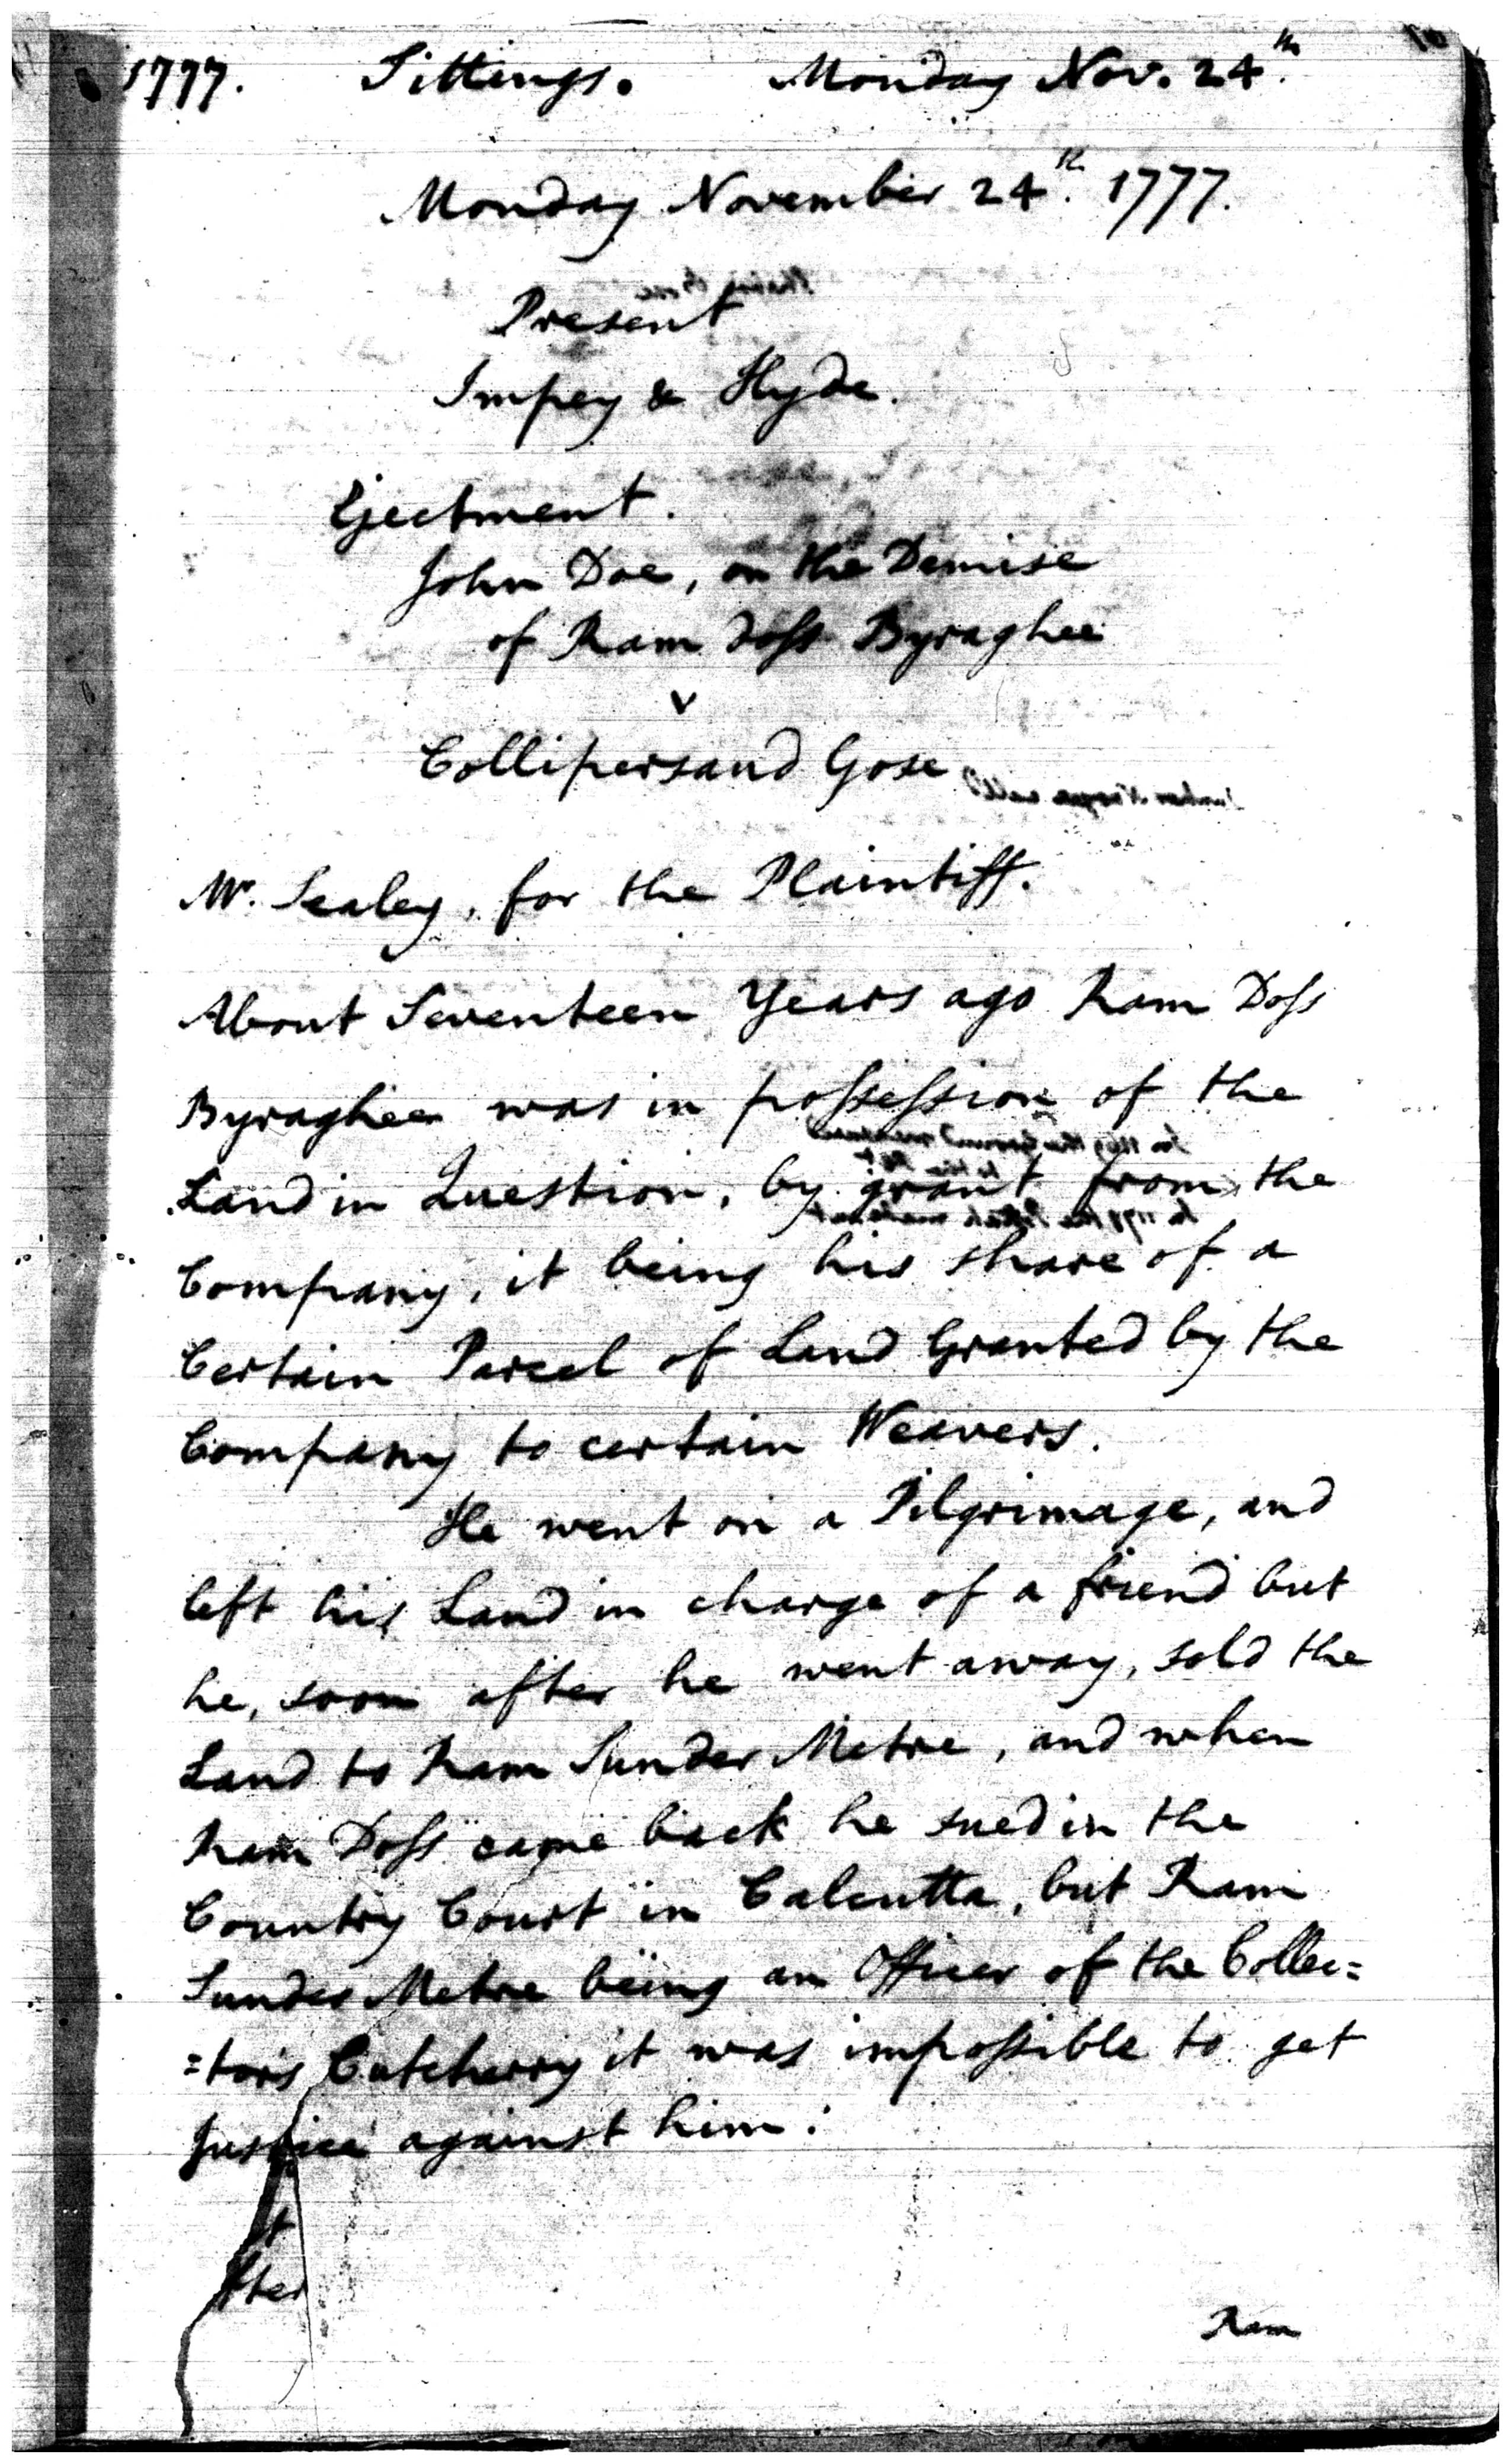 1777. Sittings. Monday Nov. 24th.
Monday November 24th. 1777.
Present
Impey & Hyde.
Ejectment.
John Doe, on the Demise
of Ram Doss Byraghee
v
Collipersaud Gose
Mr. Sealey, for the Plaintiff.
About Seventeen Years ago Ram Doss
Byraghee was in possession of the
Land in Question, by grant from the
Company, it being his share of a
Certain Parcel of Land Granted by the
Company to certain Weavers.
He went on a Pilgrimage, and
left his Land in charge of a friend but
he, soon after he went away, sold the
Land to Ram Sunder Metre, and when
Ram Doss came back he sued in the
Country Court in Calcutta, but Ram
Sunder Metre being an Officer of the Collec=
=tor's Cutcherry it was impossible to get
Justice against him.
Ram